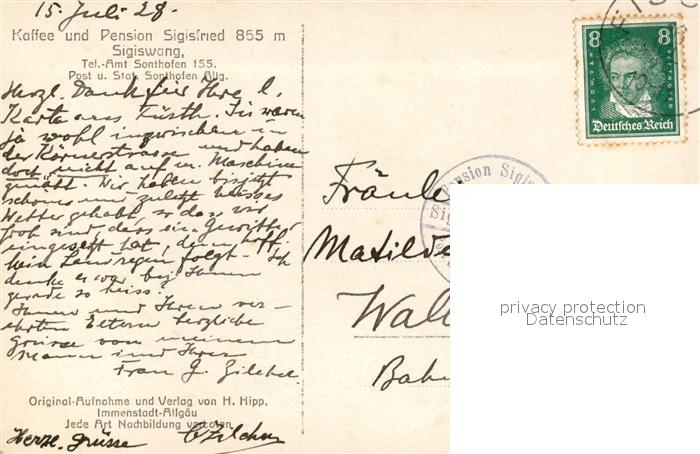 15. Juli 28.
Kaffee und Pension Sigisfried 865 m
Sigiswang,
Tel.-Amt Sonthofen 155.
Post u. Stat. Sonthofen Allg.
Herzl. Dank für Ihre l.
Karte aus Füssh. Sie waren
ja wohl inzwischen in
der Körnerstrasse und haben
doch nicht auf m. Maschine
genäht. Wir haben bis jetzt
schönes und zuletzt heisses
Wetter gehabt, so dass wir
froh sind, dass ein Gewitter
eingesetzt hat, dem hffl.
kein Landregen folgt. Ich
denke es war bei Ihnen
gerade so heiss.
Ihnen und Ihren ver-
ehrten Eltern herzliche
Grüsse von meinem
Mann und Ihrer
Frau G. Zilcher
Original-Aufnahme und Verlag von H. Hipp,
Immenstadt-Allgäu
Jede Art Nachbildung verboten
Herzl. Grüsse
8 8
LUDW. VAN BEETHOVEN
Deutsches Reich
Pension Sigis
Fräule
Matilde
Wal
Bah
privacy protection
Datenschutz